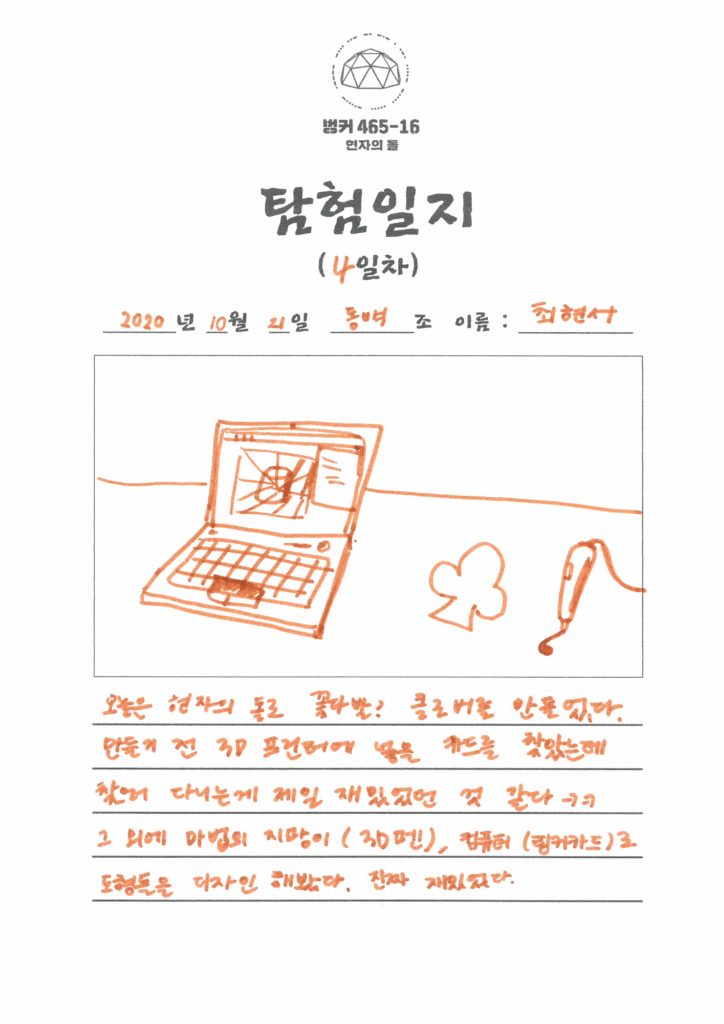 벙커 465-16
현자의 돌
탐험일지
(4일차)
2020년 10월 21일 동백조 이름 : 최현서
오늘은 현자의 돌로 꽃다발? 클로버를 만들었다.
만들기 전 3D 프린터에 넣을 카드를 찾았는데
찾으러 다니는게 제일 재밌었던 것 같다 ㅋㅋ
그 외에 마법의 지팡이 (3D펜), 컴퓨터 (팅커카드)로
도형들을 디자인 해봤다. 진짜 재밌었다.